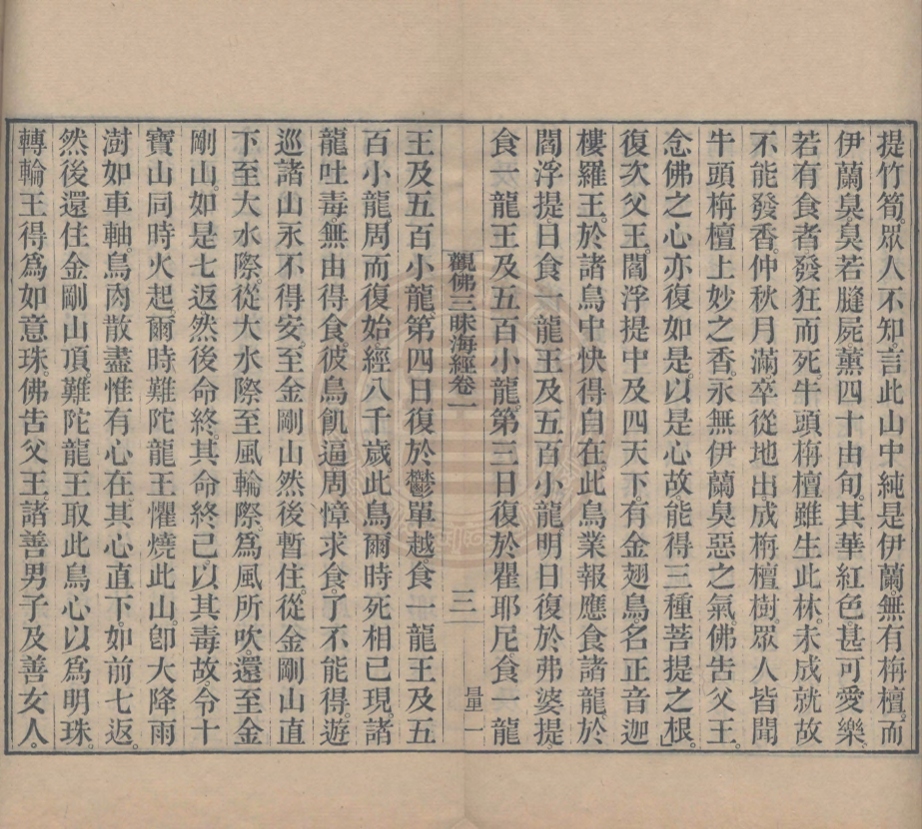 提竹筍。眾人不知。言此山中純是伊蘭。無有栴檀。而
伊蘭臭。臭若膖屍。薰四十由旬。其華紅色。甚可愛樂。
若有食者。發狂而死。牛頭栴檀雖生此林。未成就故
不能發香。仲秋月滿。卒從地出。成栴檀樹。眾人皆聞
牛頭栴檀上妙之香。永無伊蘭臭惡之氣。佛告父王。
念佛之心亦復如是。以是心故。能得三種菩提之根。
復次父王。閻浮提中及四天下。有金翅鳥。名正音迦
樓羅王。於諸鳥中快得自在。此鳥業報應食諸龍。於
閻浮提日食一龍王及五百小龍。明日復於弗婆提。
食一龍王及五百小龍。第三日復於瞿耶尼。食一龍
觀佛三昧海經卷一 三 量一
王及五百小龍。第四日復於鬱單越。食一龍王及五
百小龍。周而復始。經八千歲。此鳥爾時死相已現。諸
龍吐毒。無由得食。彼鳥飢逼。周慞求食。了不能得。遊
巡諸山。永不得安。至金剛山。然後暫住。從金剛山直
下至大水際。從大水際至風輪際。為風所吹。還至金
剛山。如是七返。然後命終。其命終已。以其毒故。令十
寶山同時火起。爾時難陀龍王懼燒此山。即大降雨
澍如車軸。鳥肉散盡。惟有心在。其心直下。如前七返。
然後還住金剛山頂。難陀龍王取此鳥心以為明珠。
轉輪王得為如意珠。佛告父王。諸善男子及善女人。